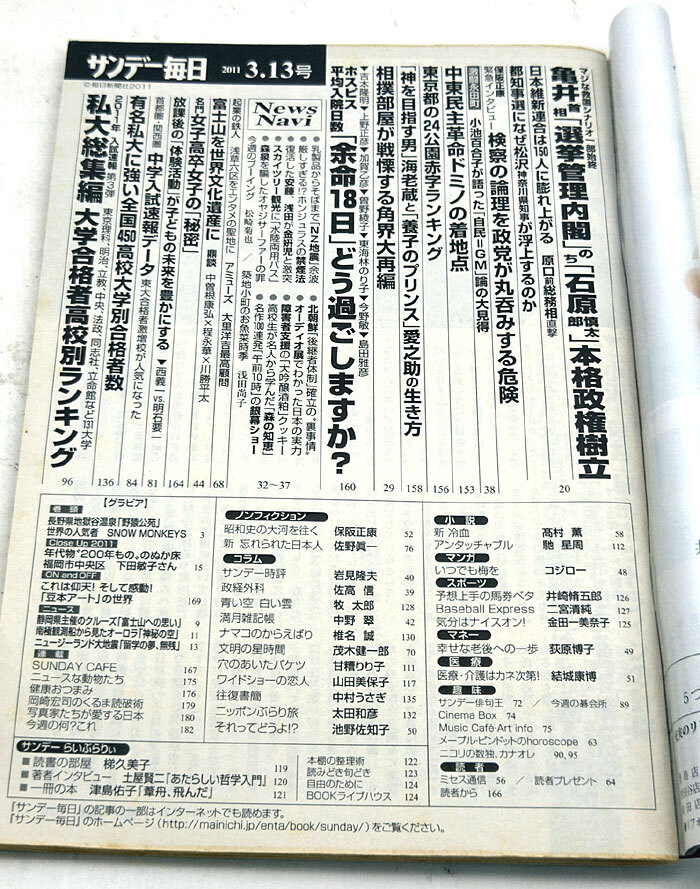 サンデー毎日 2011 3.13号
©毎日新聞社2011
マジな救国シナリオ一部始終
亀井静香首相「選挙管理内閣」のち「石原慎太郎」本格政権樹立 20
日本維新連合は150人に膨れ上がる 原口前総務相直撃
都知事選になぜ松沢神奈川県知事が浮上するのか
保阪正康
緊急インタビュー 検察の論理を政党が丸呑みする危険 38
激動永田町 小池百合子が語った「自民=GM」論の大見得 153
中東民主革命ドミノの着地点 156
東京都の24公園赤字ランキング 158
「神を目指す男」海老蔵と「養子のプリンス」愛之助の生き方
相撲部屋が戦慄する角界大再編 29
▼吉本隆明▼上野正彦▼加賀乙彦▼曽野綾子▼東海林のり子▼今野敏▼島田雅彦
ホスピス
平均入院日数 「余命18日」どう過ごしますか? 160
News Navi
●乳製品からそばまで「NZ地震」余波
●厳しすぎる!?ホンジュラスの禁煙法
●復活した安藤、浅田が金妍児と激突
●スカイツリー観光に「水陸両用バス」
●森泉を騙したオヤジサーファーの罪
今週のブーイング 松崎菊也/築地小町のお魚菜時季 浅田尚子
●北朝鮮「後継者体制」確立の〝裏事情〟
●オーディオ展でわかった日本の実力
●障害者支援の「大吟醸酒粕」クッキー
●高校生が名人から学んだ「森の知恵」
●名作100連発「午前10時」の銀幕ショー
32〜37
起業の鉄人 浅草六区をエンタメの聖地に アミューズ 大里洋吉最高顧問 68
富士山を世界文化遺産に 鼎談 中曽根康弘×程永華×川勝平太 44
名門女子高卒女子の「秘密」 164
放課後の「体験活動」が子どもの未来を豊かにする ▼西義一vs.明石要一
首都圏・関西圏 中学入試速報データ 東大合格者激増校が人気になった 81
有名私大に強い全国450高校大学別合格者数 84
136
2011年入試速報 第3弾 東京理科、明治、立教、中央、法政、同志社、立命館など131大学
私大総集編 大学合格者高校別ランキング 96
【グラビア】
巻頭
長野県地獄谷温泉「野猿公苑」
世界の人気者 SNOW MONKEYS 3
Close Up 2011
年代物〝200年もの〟のぬか床
福岡市中央区 下田敏子さん 15
ON and OFF
これは仰天!そして感動!
「豆本アート」の世界 169
ニュース
静岡県主催のクルーズ「富士山への思い」 9
南極観測船から見たオーロラ「神秘の空」 11
ニュージーランド大地震「留学の夢、無残」 13
連載
SUNDAY CAFE 167
ニュースな動物たち 175
健康おつまみ 176
岡崎宏司のくるま読破術 179
写真家たちが愛する日本 180
今週の何?これ 182
ノンフィクション
昭和史の大河を往く 保阪正康 52
新 忘れられた日本人 佐野眞一 76
コラム
サンデー時評 岩見隆夫 40
政経外科 佐高信 39
青い空 白い雲 牧太郎 128
満月雑記帳 中野翠 42
ナマコのからえばり 椎名誠 130
文明の星時間 茂木健一郎 70
穴のあいたバケツ 甘糟りり子 111
ワイドショーの恋人 山田美保子 117
往復書簡 中村うさぎ 135
ニッポンぶらり旅 太田和彦 132
それってどうよ!? 池野佐知子 50
小説
新 冷血 髙村薫 58
アンタッチャブル 馳星周 112
マンガ
いつでも梅を コジロー 48
スポーツ
予想上手の馬券ベタ 井崎脩五郎 126
Baseball Express 二宮清純 127
気分はナイスオン! 金田一美奈子 125
マネー
幸せな老後への一歩 荻原博子 49
医療
医療・介護はカネ次第! 結城康博 51
趣味
サンデー俳句王 72 / 今週の碁会所 89
Cinema Box 74
Music Café・Art info 75
メープル・ピンドットのhoroscope 63
ニコリの数独、カナオレ 90, 95
読者
ミセス通信 56 / 読者プレゼント 64
読者から 166
サンデーらいぶらりぃ
■読書の部屋 梯久美子 119
■著者インタビュー 土屋賢二「あたらしい哲学入門」 120
■一冊の本 津島佑子「葦舟、飛んだ」 121
本棚の整理術 122
読みどき旬どき 123
自由のために 124
BOOKライブハウス 124
『サンデー毎日』の記事の一部はインターネットでも読めます。
『サンデー毎日』のホームページ(http://mainichi.jp/enta/book/sunday/)をご覧ください。